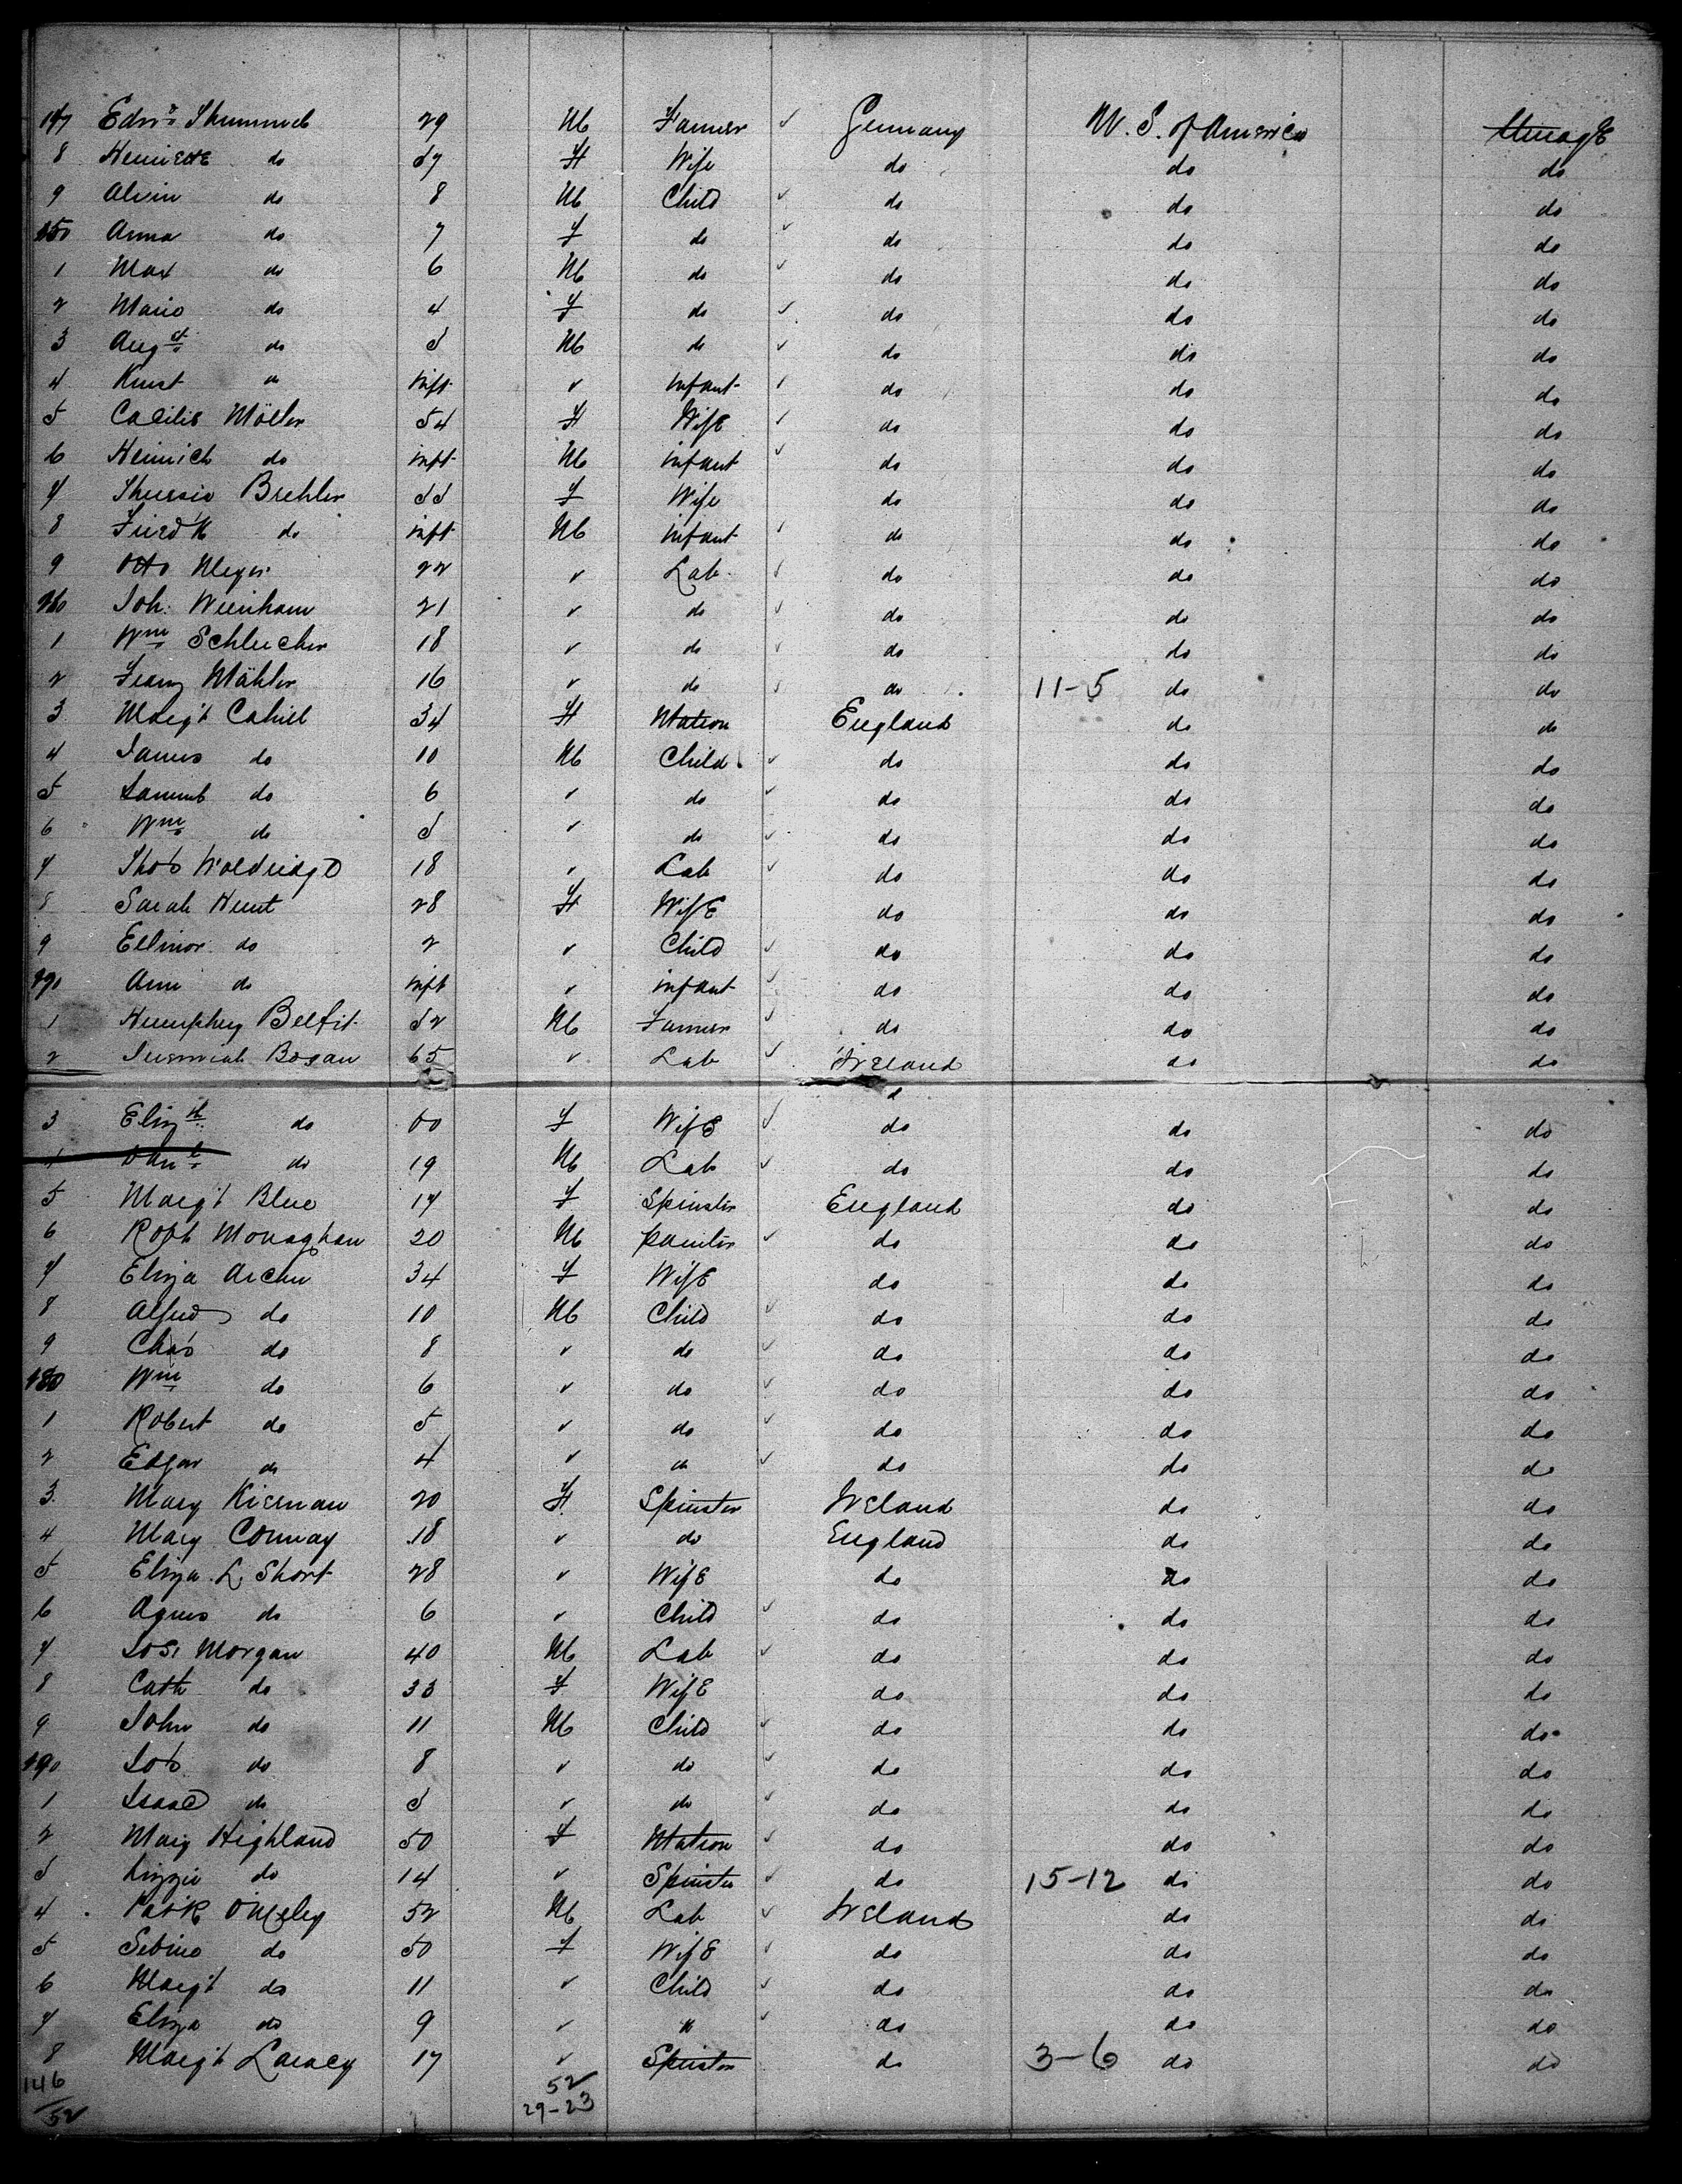 147 Edwd 29 M Farmer ✓ Germany U. S. of America
8 Henriette do 27 F Wife do do do
9 Alvin do 8 M Child ✓ do do do
150 Anna do 7 F do ✓ do do do
1 Max do 6 M do ✓ do do do
2 Marie do 4 F do ✓ do do do
3 Augst do 3 M do ✓ do do do
4 do inft ✓ infant ✓ do do do
5 Möller 34 F Wife ✓ do do do
6 Heinrich do inft M infant ✓ do do do
7 33 F Wife do do do
8 do inft M infant ✓ do do do
9 Otto Meyer 22 ✓ Lab ✓ do do do
160 Joh: 21 ✓ do ✓ do do do
1 Wm Schleicher 18 ✓ do do do do
2 Franz Mähler 16 ✓ do ✓ do 11-5 do do
3 Margt Cahill 34 F Matron England do do
4 James do 10 M Child ✓ do do do
5 do 6 ✓ do ✓ do do do
6 Wm do 3 ✓ do ✓ do do do
7 Thos 18 ✓ Lab ✓ do do do
8 Sarah Hunt 28 F Wife do do do
9 Ellinor do 2 ✓ Child ✓ do do do
170 Ann do inft ✓ infant ✓ do do do
1 Humphrey Belfit 32 M Farmer ✓ do do do
2 Jeremiah Bogan 65 ✓ Lab ✓ Ireland do do
3 Elizth do 60 F Wife ✓ do do do
4 Danl do 19 M Lab ✓ do do do
5 Margt Blue 17 F Spinster England do do
6 Robt Monaghan 20 M painter ✓ do do do
7 Eliza Archer 34 F Wife do do do
8 Alfred do 10 M Child ✓ do do do
9 Chas do 8 ✓ do ✓ do do do
180 Wm do 6 ✓ do ✓ do do do
1 Robert do 5 ✓ do ✓ do do do
2 Edgar do 4 ✓ do ✓ do do do
3 Mary Kiernan 20 F Spinster Ireland do do
4 Mary Conway 18 ✓ do England do do
5 Eliza L. Short 28 ✓ Wife do do do
6 Agnes do 6 ✓ Child ✓ do do do
7 Morgan 40 M Lab ✓ do do do
8 Cath do 33 F Wife do do do
9 John do 11 M Child ✓ do do do
190 do 8 ✓ do ✓ do do do
1 Isaac do 3 ✓ do ✓ do do do
2 Mary Highland 50 F Matron ✓ do do do
3 Lizzie do 14 ✓ Spinster ✓ do 15-12 do do
4 Patk 52 M Lab ✓ Ireland do do
5 do 50 F Wife ✓ do do do
6 Margt do 11 ✓ Child ✓ do do do
7 Eliza do 9 ✓ " ✓ do do do
8 Margt 17 ✓ Spinster do 3-6 do do
146 52
52 29-23